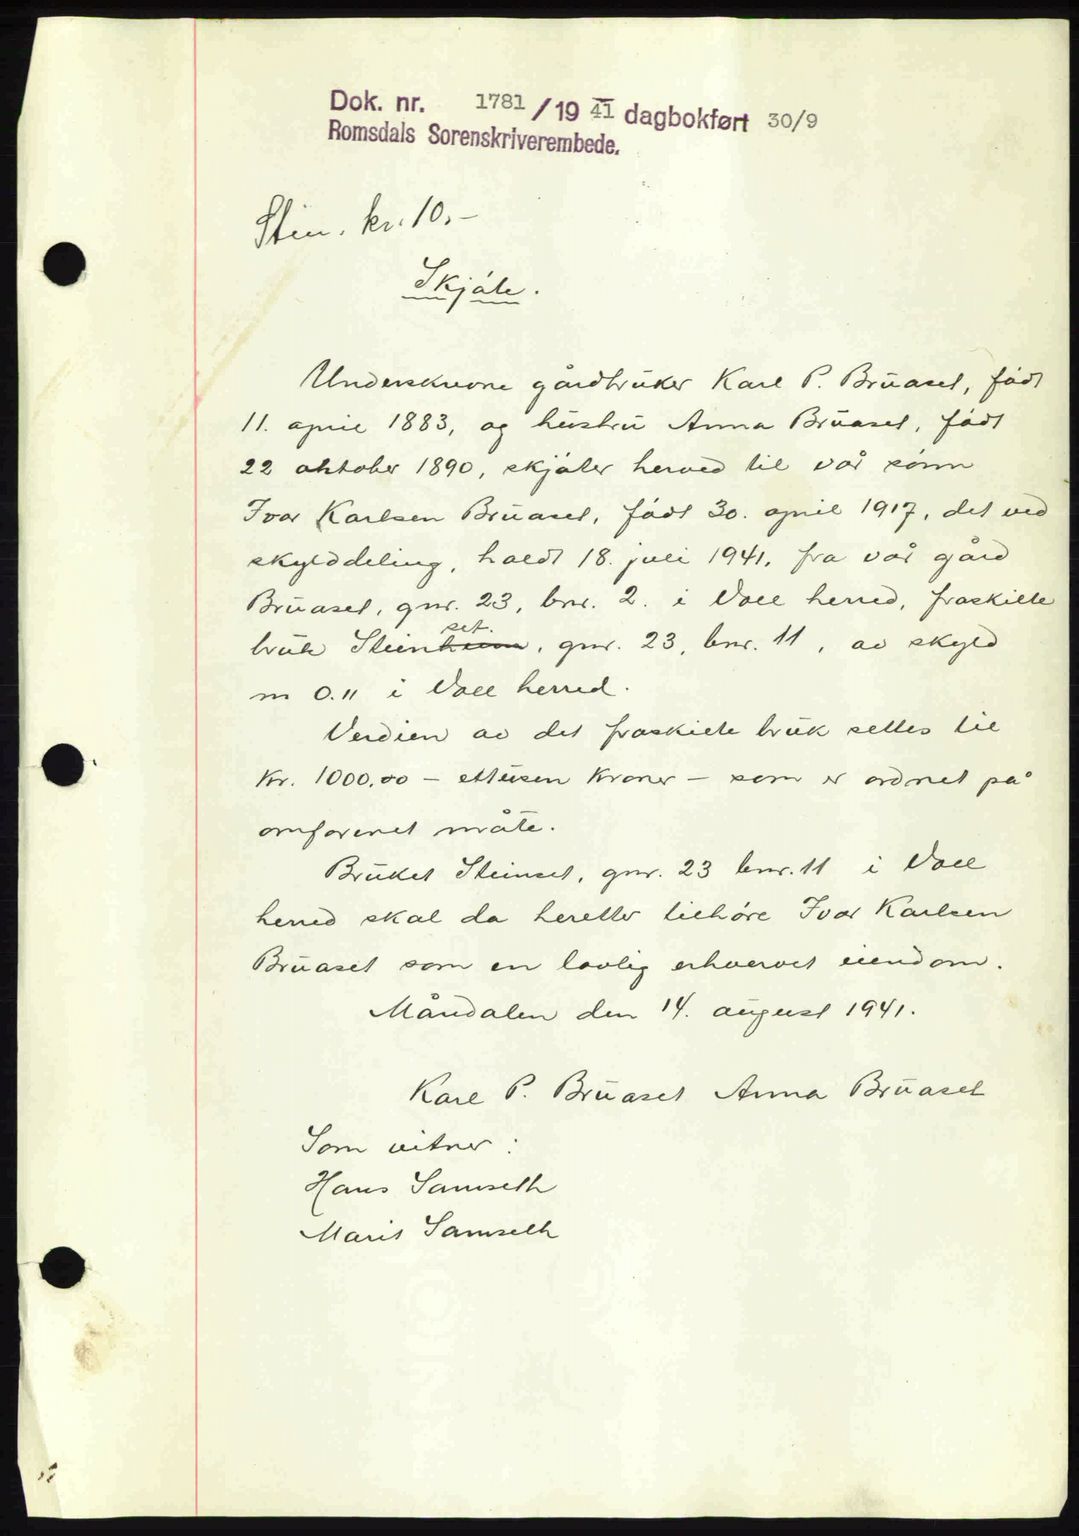 Dok. nr. 1781 / 19 41 dagbokført 30/9
Romsdals Sorenskriverembede.
Stem. kr. 10.-
Skjöte.
Underskrevne gårdbruker Karl P. Bruaset, født
11. april 1883, og hustru Anna Bruaset, født
22 oktober 1890, skjöter herved til vår sönn
Ivar Karlsen Bruaset, født 30. april 1917, det ved
skylddeling, holdt 18. juli 1941, fra vår gård
Bruaset, gnr. 23, bnr. 2. i Voll herred, fraskilte
set.
bruk Steinheim, gnr. 23, bnr. 11, av skyld
m 0.11 i Voll herred.
Verdien av det fraskilte bruk settes til
kr. 1000.00 - ettusen kroner - som er ordnet på
omforenet måte.
Bruket Steinset, gnr. 23 bnr. 11 i Voll
herred skal da heretter tilhöre Ivar Karlsen
Bruaset som en lovlig erhvervet eiendom.
Måndalen den 14. august 1941.
Karl P. Bruaset Anna Bruaset
Som vitner :
Hans Samseth
Marit Samseth